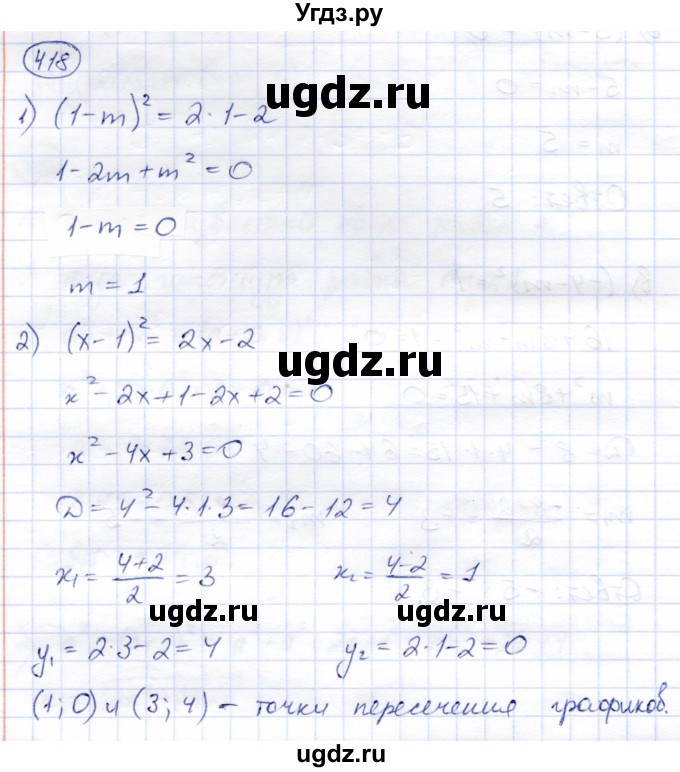 Угдз.ру
418
1) (1-m)² = 2·1-2
1-2m+m² = 0
1-m = 0
m = 1
2) (x-1)² = 2x-2
x²-2x+1-2x+2=0
x²-4x+3=0
D = 4²-4·1·3 = 16-12 = 4
x₁ = (4+2)/2 = 3    x₂ = (4-2)/2 = 1
y₁ = 2·3-2 = 4    y₂ = 2·1-2 = 0
(1; 0) и (3; 4) - точки пересечения графиков.
ugdz.ru
ugdz.ru
ugdz.ru
ugdz.ru
ugdz.ru